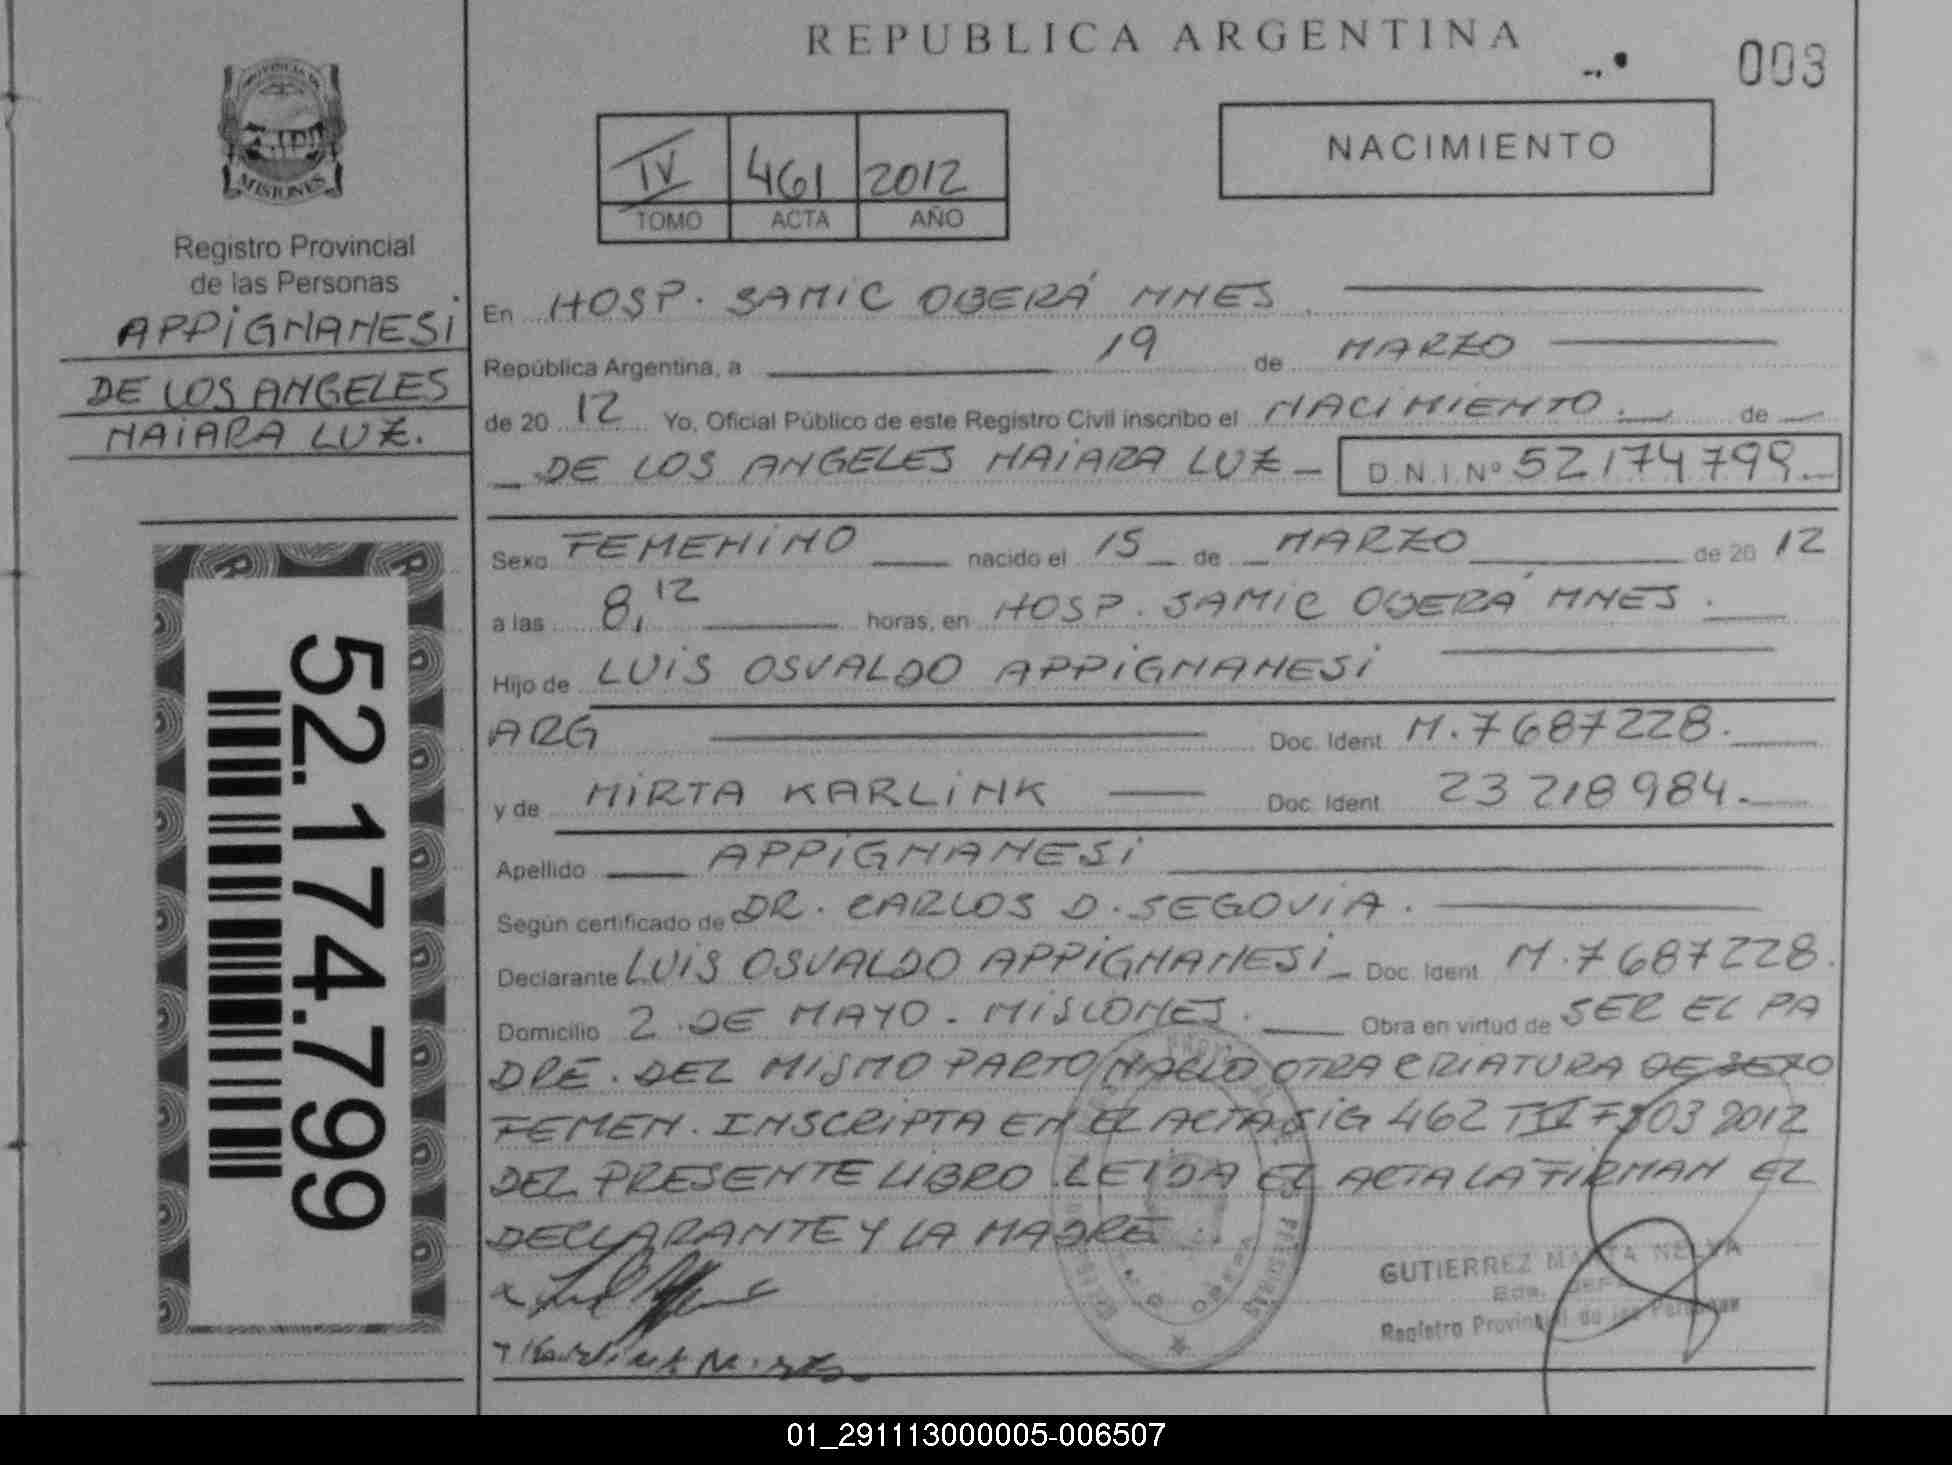 REPUBLICA ARGENTINA
003
PROVINCIA DE
MISIONES
Registro Provincial
de las Personas
APPIGNANESI
DE LOS ANGELES
NAIARA LUZ.
52.174.799
IV 461 2012
TOMO ACTA AÑO
NACIMIENTO
En HOSP. SAMIC OBERÁ MNES
República Argentina, a 19 de MARZO
de 20 12 Yo, Oficial Público de este Registro Civil inscribo el NACIMIENTO. de
DE LOS ANGELES NAIARA LUZ D.N.I. Nº 52174799.
Sexo FEMENINO nacido el 15 de MARZO de 20 12
a las 8,12 horas, en HOSP. SAMIC OBERÁ MNES.
Hijo de LUIS OSVALDO APPIGNANESI
ARG Doc. Ident M.7687228.
y de MIRTA KARLINK Doc. Ident 23 218984.
Apellido APPIGNANESI
Según certificado de DR. CARLOS D. SEGOVIA.
Declarante LUIS OSVALDO APPIGNANESI Doc. Ident M.7687228.
Domicilio 2 DE MAYO - MISIONES. Obra en virtud de SER EL PA
DRE. DEL MISMO PARTO NACIO OTRA CRIATURA DE SEXO
FEMEN. INSCRIPTA EN EL ACTA SIG 462 2012
DEL PRESENTE LIBRO LEIDA EL ACTA LA FIRMAN EL
DECLARANTE Y LA MADRE.
GUTIERREZ MARTA NELVA
Registro Provincial de las Personas
01_291113000005-006507